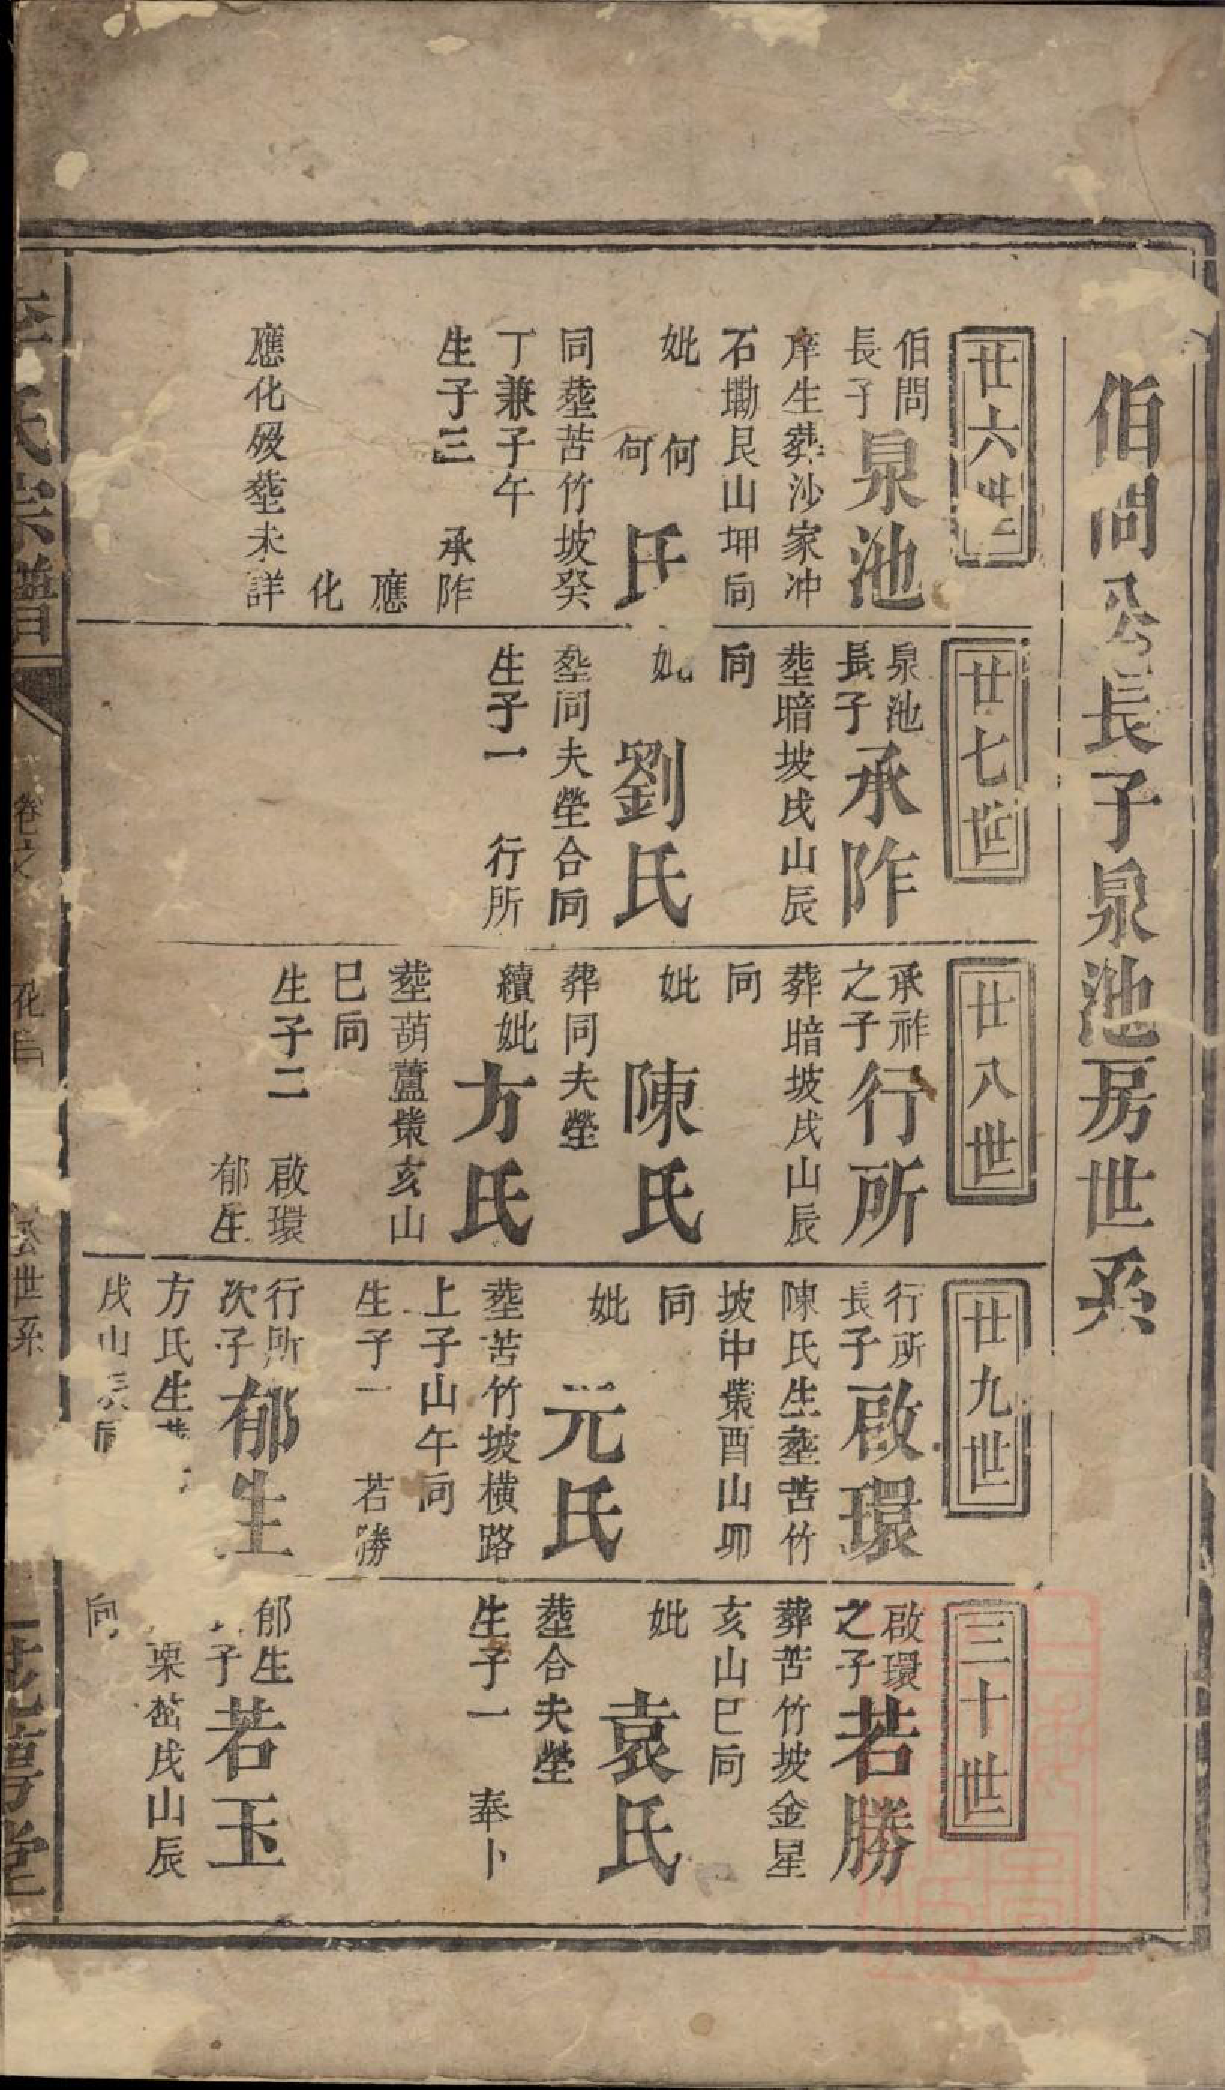 伯問公長子泉池房世系
廿六世
伯問
長子
泉池
庠生葬沙家冲
石墈艮山坤向
妣
何
何
氏
同塟苦竹坡癸
丁兼子午
生子三 承阼
應
化
應化殁塟未詳
廿七世
泉池
長子
承阼
塟暗坡戌山辰
向
妣
劉氏
塟同夫塋合向
生子一 行所
廿八世
承祚
之子
行所
葬暗坡戌山辰
向
妣
陳氏
葬同夫塋
續妣
方氏
塟葫蘆䉼亥山
巳向
生子二 啟環
郁生
廿九世
行所
長子
啟環
陳氏生塟苦竹
坡中䉼酉山卯
向
妣
元氏
塟苦竹坡橫路
上子山午向
生子一 若勝
行所
次子
郁生
方氏生
戌山辰向
三十世
啟環
之子
若勝
葬苦竹坡金星
亥山巳向
妣
袁氏
塟合夫塋
生子一 奉卜
郁生
子
若玉
栗𡶶戌山辰
向
氏宗譜
世系
堂